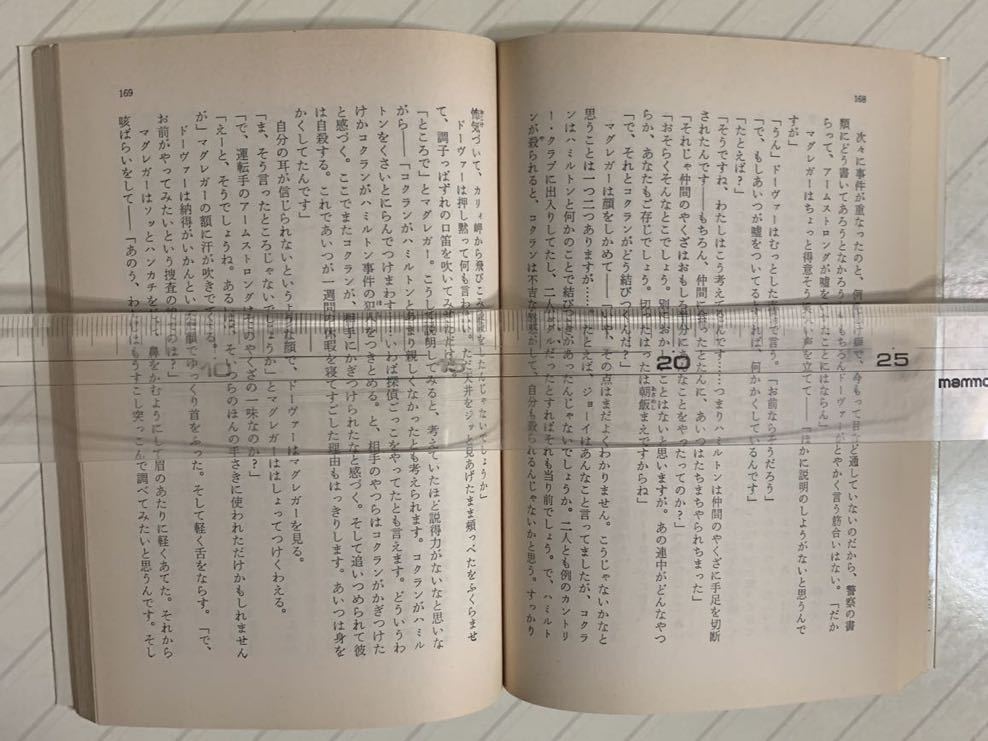 168
次々に事件が重なったのと、例によって例で、今もって目など通していないのだから、警察の書
類にどう書いてあろうとなかろうと――もちろんドーヴァーがとやかく言う筋合いはない。「だか
らって、アームストロングが嘘をいたことにはならん」
マグレガーはちょっと得意そうな笑い声を立てて――「ほかに説明のしようがないと思うんで
すが」
「うん」ドーヴァーはむっとした表情で言う。「お前ならそうだろう」
「で、もしあいつが嘘をついてるとすれば、何かかくしているんです」
「たとえば?」
「そうですね、わたしはこう考えてるんです……つまりハミルトンは仲間のやくざに手足を切断
されたんです――もちろん、仲間と会ったとたんに、あいつはたちまちやられちまった」
「それじゃ仲間のやくざはおもしろ半分にあんなことをやったってのか?」
「おそらくそんなとこでしょう。別におかしいことはないと思いますが。あの連中がどんなやつ
らか、あなたもご存じでしょう。切ったはったは朝飯まえですからね」
「で、それとコクランがどう結びつくんだ?」
マグレガーは顔をしかめて――「いや、その点はまだよくわかりません。こうじゃないかなと
思うことは一つ二つありますが……たとえば、ジョーイはあんなこと言ってましたが、コクラ
ンはハミルトンと何かのことで結びつきがあったんじゃないでしょうか。二人とも例のカントリ
ー・クラブに出入りしてたし、二人がグルだったとすればそれも当り前でしょう。で、ハミルト
ンが殺られると、コクランは不吉な予感がして、自分も殺られるんじゃないかと思う。すっかり
169
怖気づいて、カリィ岬から飛びこみ自殺をしたんじゃないでしょうか」
ドーヴァーは押し黙って何も言わない。ただ天井をジッと見あげたまま頰っぺたをふくらませ
て、調子っぱずれの口笛を吹いてみせただけ。
「ところで」とマグレガー。「こうして説明してみると、考えていたほど説得力がないなと思いな
がら――「コクランがハミルトンとあまり親しくなかったとも考えられます。コクランがハミル
トンをくさいとにらんでつけまわす……いわば探偵ごっこをやってたとも言えます。どういうわ
けかコクランがハミルトン事件の犯人をつきとめる。と、相手のやつらはコクランがかぎつけた
と感づく。ここでまたコクランが、相手にかぎつけられたなと感づく。そして追いつめられて彼
は自殺する。これであいつが一週間の休暇を寝てすごした理由もはっきりします。あいつは身を
かくしてたんです」
自分の耳が信じられないというような顔で、ドーヴァーはマグレガーを見る。
「ま、そう言ったところじゃないでしょうか」とマグレガーははしょってつけくわえる。
「で、運転手のアームストロングはそのやくざの一味なのか?」
「えーと、そうでしょうね。あるいは、そいつらのほんの手さきに使われただけかもしれません
が」マグレガーの額に汗が吹きでてくる。
ドーヴァーは納得がいかんといった顔でゆっくり首をふった。そして軽く舌をならす。「で、
お前がやってみたいという捜査の線てのは?」
マグレガーはソッとハンカチを出して、鼻をかむようにして眉のあたりに軽くあてた。それから
咳ばらいをして――「あのう、わたしはもうすこし突っこんで調べてみたいと思うんです。そし
10
15
20
25
mammo